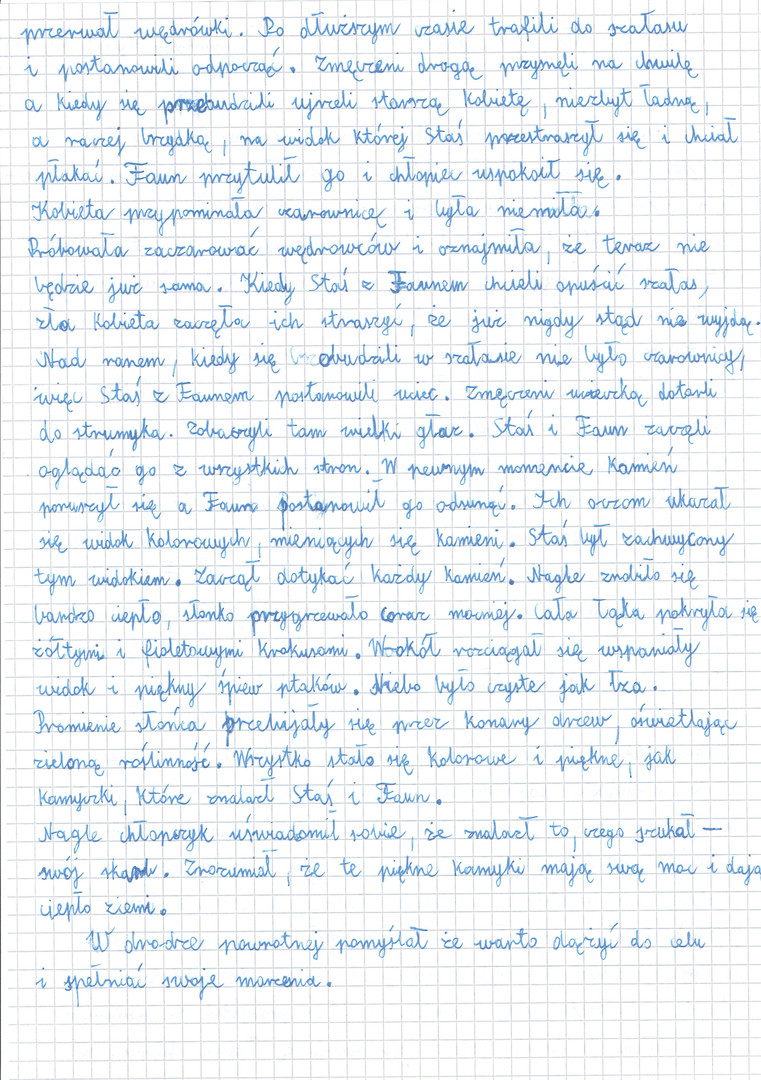 przerwał wędrówki. Po dłuższym czasie trafili do szałasu
i postanowili odpocząć. Zmęczeni drogą przysnęli na chwilę
a kiedy się przebudzili ujrzeli starszą kobietę, niezbyt ładną,
a raczej brzydką, na widok której Staś przestraszył się i chciał
płakać. Faun przytulił go i chłopiec uspokoił się.
Kobieta przypominała czarownicę i była niemiła.
Próbowała zaczarować wędrowców i oznajmiła, że teraz nie
będzie już sama. Kiedy Staś z Faunem chcieli opuścić szałas,
zła kobieta zaczęła ich straszyć, że już nigdy stąd nie wyjdą.
Nad ranem, kiedy się obudzili w szałasie nie było czarownicy,
więc Staś z Faunem postanowili uciec. Zmęczeni ucieczką dotarli
do strumyka. Zobaczyli tam wielki głaz. Staś i Faun zaczęli
oglądać go z wszystkich stron. W pewnym momencie kamień
poruszył się a Faun postanowił go odsunąć. Ich oczom ukazał
się widok kolorowych, mieniących się kamieni. Staś był zachwycony
tym widokiem. Zaczął dotykać każdy kamień. Nagle zrobiło się
bardzo ciepło, słonko przygrzewało coraz mocniej. Cała łąka pokryła się
żółtymi i fioletowymi krokusami. Wokół rozciągał się wspaniały
widok i piękny śpiew ptaków. Niebo było czyste jak łza.
Promienie słońca przebijały się przez konary drzew, oświetlając
zieloną roślinność. Wszystko stało się kolorowe i piękne, jak
kamyczki, które znalazł Staś i Faun.
Nagle chłopczyk uświadomił sobie, że znalazł to, czego szukał –
swój skarb. Zrozumiał, że te piękne kamyki mają swą moc i dają
ciepło ziemi.
W drodze powrotnej pomyślał że warto dążyć do celu
i spełniać swoje marzenia.